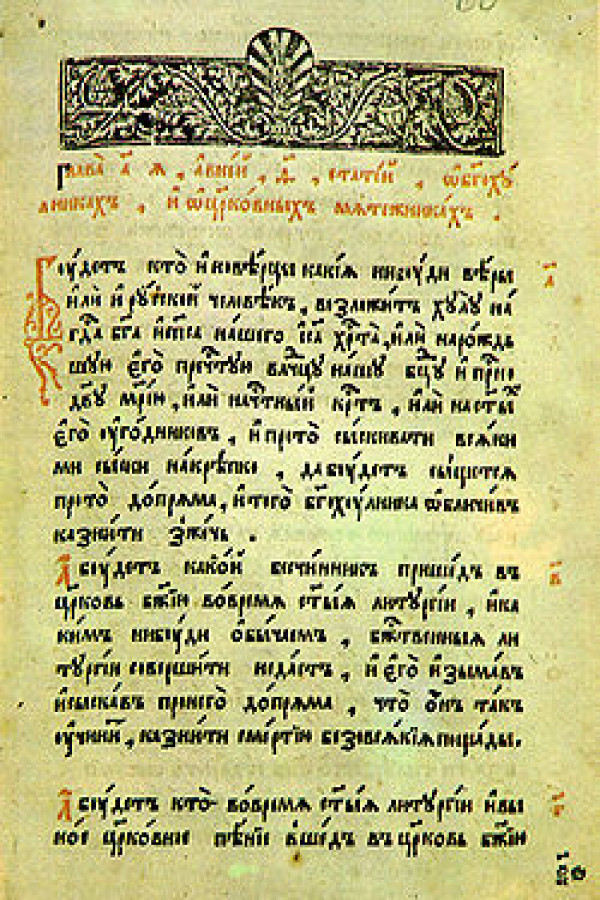 Глава̀ а҃ я, а в не́й, ѳ҃, стате́й, ѡ бг҃оху́
лникахъ, и ѡ цр҃ко́вныхъ мяте́жникахъ.
Бꙋ́детъ кто̀ и҆новѣ́рцы какі́я ни бꙋ́ди вѣ́ры
и҆лѝ и҆ рꙋ́ской человѣ́къ, возложи́тъ хꙋлꙋ̀ на
гд҃а бг҃а и҆ сп҃са на́шего і҆с҃а хр҃та̀, и҆лѝ наро́ждь
шꙋю є҆го̀ преч҃тꙋю влч҃цꙋ на́шꙋ бц҃ꙋ и҆ прⷭ҇но
дв҃ꙋ мр҃і́ю, и҆лѝ на ч҃тны́й кр҃тъ, и҆лѝ на ст҃ы́хъ
є҆го̀ оу҆го́дниковъ, и҆ про то̀ сы́скивати вся́ки
ми сы́ски накрѣ́пко, да бꙋ́детъ сы́щется
про то̀ до́пряма, и҆ того̀ бг҃охꙋ́лника ѡ҆бличи́въ
казни́ти зже́чь.
А҆ бꙋ́детъ како́й бесчи́нникъ прише́дъ въ
цр҃ковь бж҃ію во вре́мя ст҃ы́я литꙋргі́и, и҆ ка
ки́мъ ни бꙋ́ди ѻ҆бы́чаемъ, бж҃твенныя ли
тꙋргі́и соверши́ти не да́стъ, и҆ є҆го̀ и҆зыма́въ
и҆ сыска́въ про него̀ до́пряма, что̀ ѻ҆нъ та́къ
оу҆чини́тъ, казни́ти сме́ртію безо вся́кія поща́ды.
А҆ бꙋ́детъ кто̀ во вре́мя ст҃ы́я литꙋргі́и и҆ в ы
но́е цр҃ко́вное пѣ́ніе вше́дъ въ цр҃ковь бж҃ію
а҃
в҃
г҃